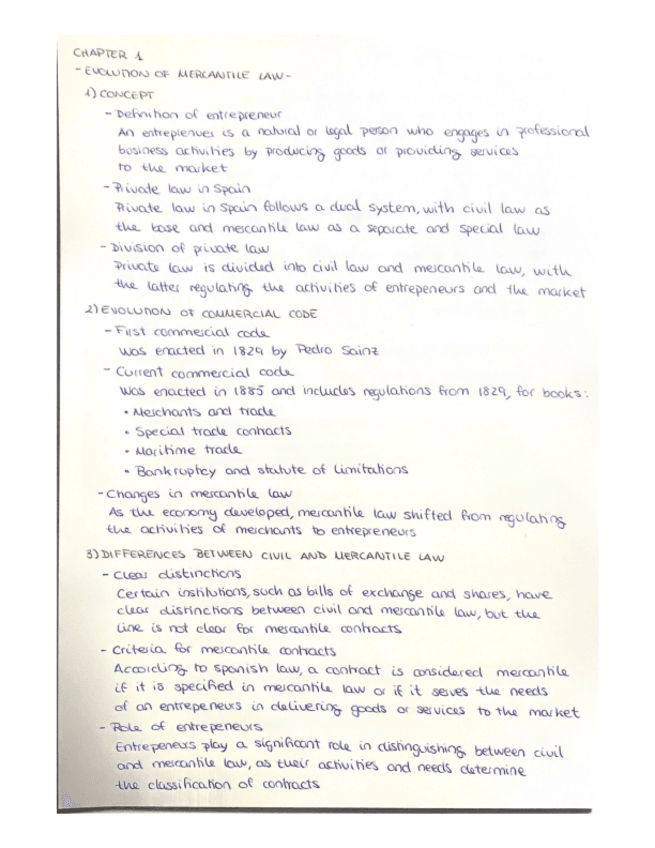 CHAPTER 1
- EVOLUTION OF MERCANTILE LAW -
1) CONCEPT
- Definition of entrepreneur
An entrepieneues is a natural or legal person who engages in professional
business activities by producing goods or providing services
to the market
- Private law in Spain
Private law in Spain follows a dual system, with civil law as
the base and mercantile law as a separate and special law
- Division of private law
Private law is divided into civil law and mercantile law, with
the latter regulating the activities of entrepeneurs and the market
2) EVOLUTION OF COMMERCIAL CODE
- First commercial code
Was enacted in 1829 by Pedro Sainz
- Current commercial code
Was enacted in 1885 and includes regulations from 1829, for books:
• Merchants and trade
• Special trade contracts
• Maritime trade
• Bankruptcy and statute of limitations
- Changes in mercantile law
As the economy developed, mercantile law shifted from regulating
the activities of merchants to entrepreneurs
3) DIFFERENCES BETWEEN CIVIL AND MERCANTILE LAW
- Clear distinctions
Certain institutions, such as bills of exchange and shares, have
clear distinctions between civil and mercantile law, but the
line is not clear for mercantile contracts
- Criteria for mercantile contracts
According to spanish law, a contract is considered mercantile
if it is specified in mercantile law or if it serves the needs
of an entrepeneurs in delivering goods or services to the market
- Role of entrepeneurs
Entrepeneurs play a significant role in distinguishing between civil
and mercantile law, as their activities and needs determine
the classification of contracts